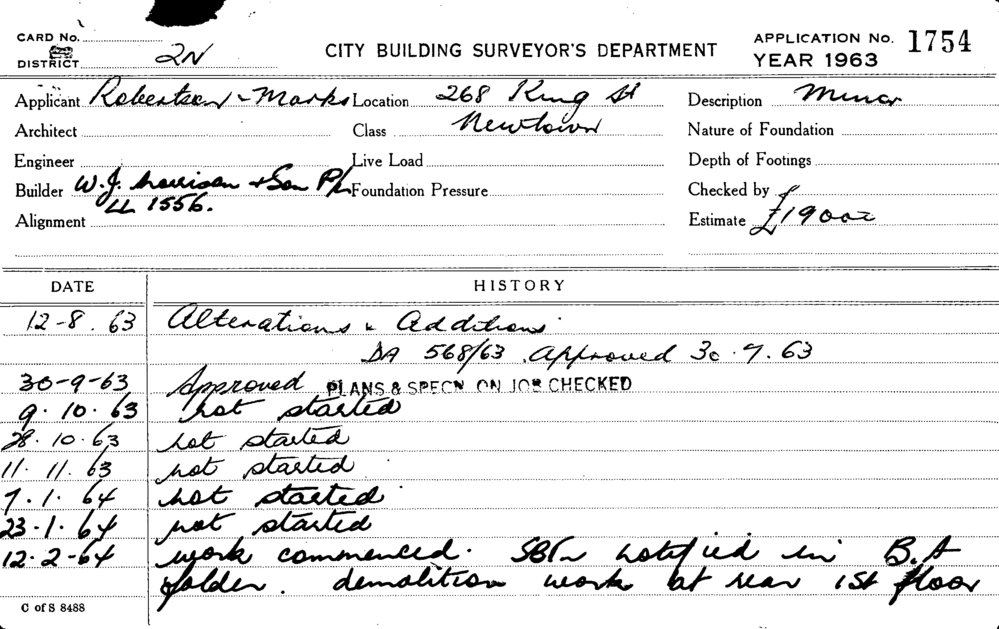 CARD No.
DISTRICT 2N
CITY BUILDING SURVEYOR'S DEPARTMENT
APPLICATION No. 1754
YEAR 1963
Applicant Robertson & Marks Location 268 King St Description Minor
Architect Class Newtown Nature of Foundation
Engineer Live Load Depth of Footings
Builder W.J. Morrison & Son P/L Foundation Pressure Checked by
LL 1556.
Alignment Estimate £1900
DATE HISTORY
12-8.63 Alterations & Additions
DA 568/63. Approved 30.7.63
30-9-63 Approved PLANS & SPECN ON JOB CHECKED
9.10.63 not started
28.10.63 not started
11.11.63 not started
7.1.64 not started
23.1.64 not started
12.2-64 work commenced. notified in B.A
folder. demolition work at rear 1st floor
C of S 8488